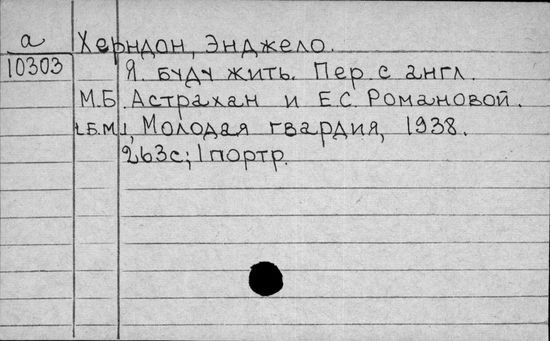 а Херндон, Энджело.
10303 Я буду жить. Пер. с англ.
М.Б. Астрахан и Е.С. Романовой.
[Б.М.], Молодая гвардия, 1938.
263с; 1 портр.